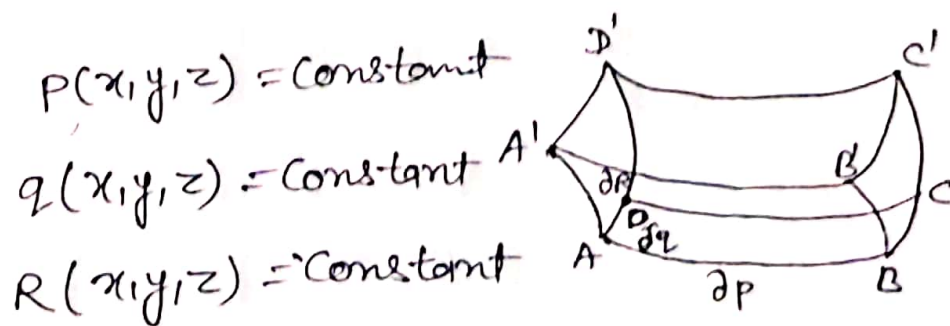 P(x,y,z) = Constant
q(x,y,z) = Constant
R(x,y,z) = Constant
D'
C'
A'
B'
∂R
D
∂q
C
A
B
∂p